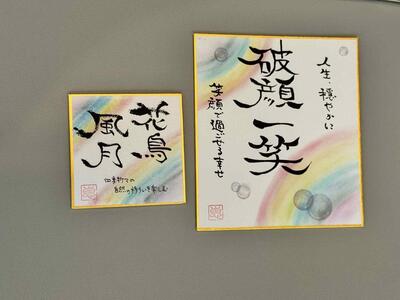 破顔一笑
人生、穏やかに
笑顔で過ごせる幸せ
花鳥
風月
四季折々の
自然の移ろいを楽しむ